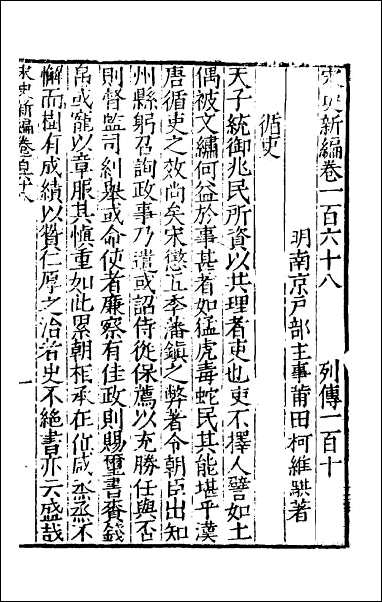 宋史新編卷一百六十八　列傳一百十
明南京戶部主事莆田柯維騏著
循吏
天子統御兆民所資以共理者吏也吏不擇人譬如土
偶被文繡何益於事甚者如猛虎毒蛇民其能堪乎漢
唐循吏之效尚矣宋懲五季藩鎮之弊著令朝臣出知
州縣躬召詢政事乃遣或詔侍從保薦以充勝任與否
則督監司糾舉或命使者廉察有佳政則賜璽書賚錢
帛或寵以章服其慎重如此累朝相承在位咸烝烝不
懈而樹有成績以贊仁厚之治者史不絕書亦云盛哉
宋史新編卷百六十八
一